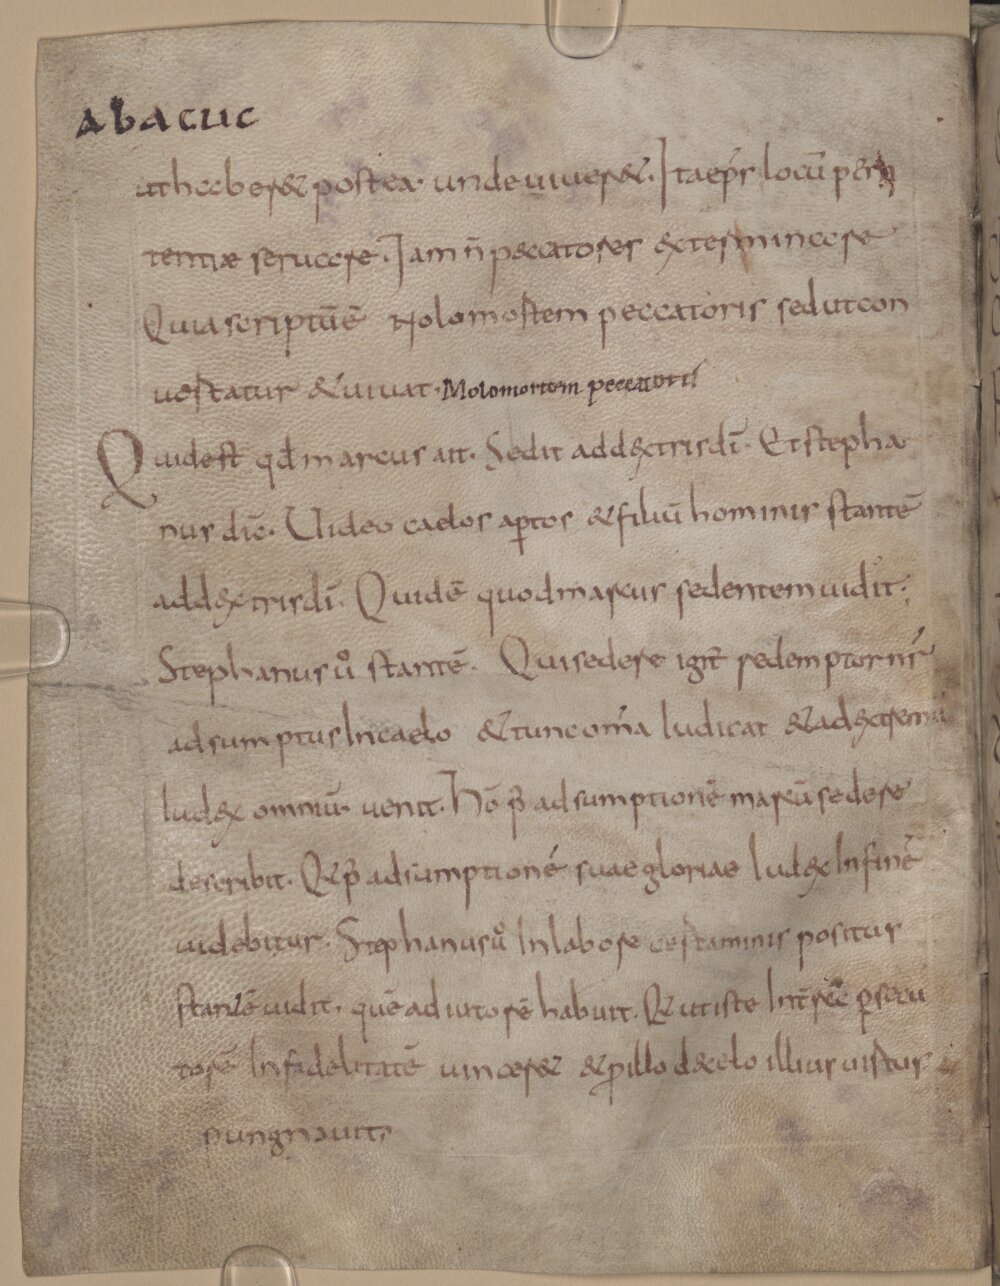 abacuc
ut haberet postea unde viveret. Ita ep̄s locū peni
tentiae servare. Iam n̄ peccatores exterminare
Quia scriptū ē Nolo mortem peccatoris sed ut con
vertatur & vivat. Nolo mortem peccatoris
Quid est qd̄ marcus ait. Sedit ad dextris dī. Et stepha
nus dic̄. Uideo caelos aptos & filiū hominis stantē
ad dextris dī. Quid ē quod marcus sedentem vidit;
Stephanus ů stantē. Qui sedere igit̄ redemptor nr̄
adsumptus In caelo & tunc om̄a Iudicat & ad extremū
Iudex omniū venit. Hō p̄ adsumptionē marcū sedere
describit. Q& p̄ adsumptionē suae gloriae Iudex In finē
videbitur. Stephanus ů In labore certaminis positus
stantē vidit, quē adiutorē habuit. Q& ut iste In terra psecu
torē Infidelitatē vincer& & p illo de caelo illius virtus
pungnavit;